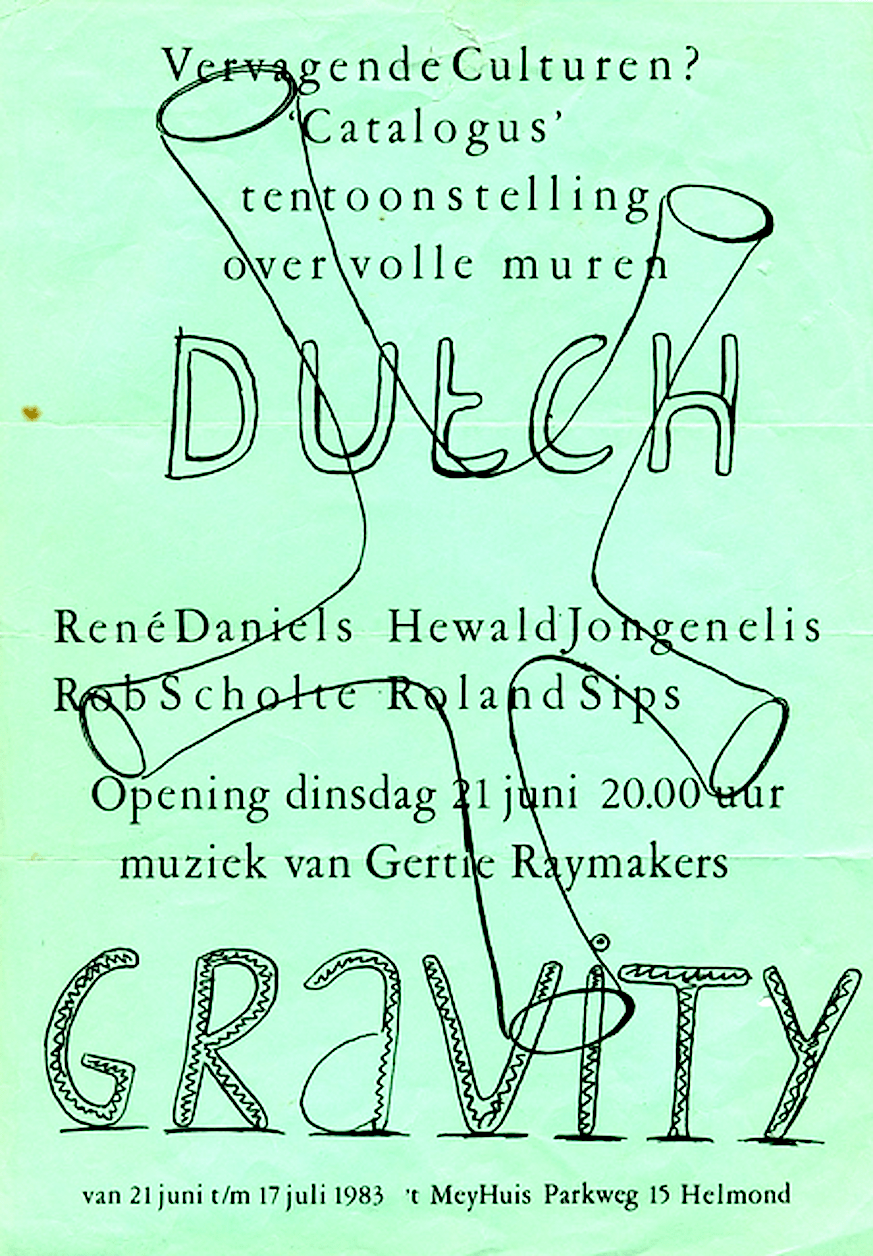 Vervagende Culturen?
‘Catalogus’
tentoonstelling
over volle muren
DUtCH
René Daniëls Hewald Jongenelis
Rob Scholte Roland Sips
Opening dinsdag 21 juni 20.00 uur
muziek van Gertie Raymakers
GRaViTY
van 21 juni t/m 17 juli 1983 't MeyHuis Parkweg 15 Helmond